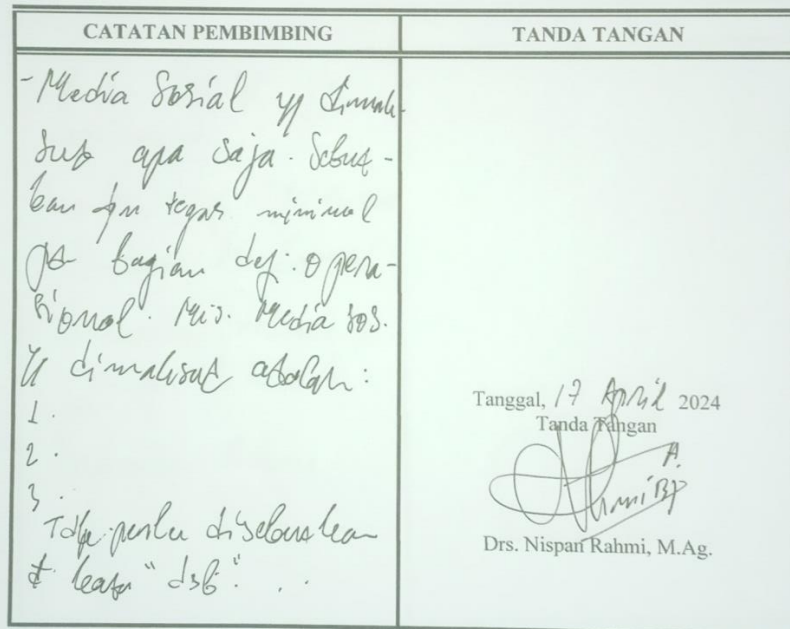 CATATAN PEMBIMBING
TANDA TANGAN
- Media Sosial yg dimak-
sud apa saja. Sebut-
kan dgn tegas minimal
pd bagian def. opera-
sional. Mis. Media sos.
yg dimaksud adalah:
1.
2.
3.
Tdk perlu disebutkan
kata "dsb". . .
Tanggal, 17 April 2024
Tanda Tangan
Drs. Nispan Rahmi, M.Ag.